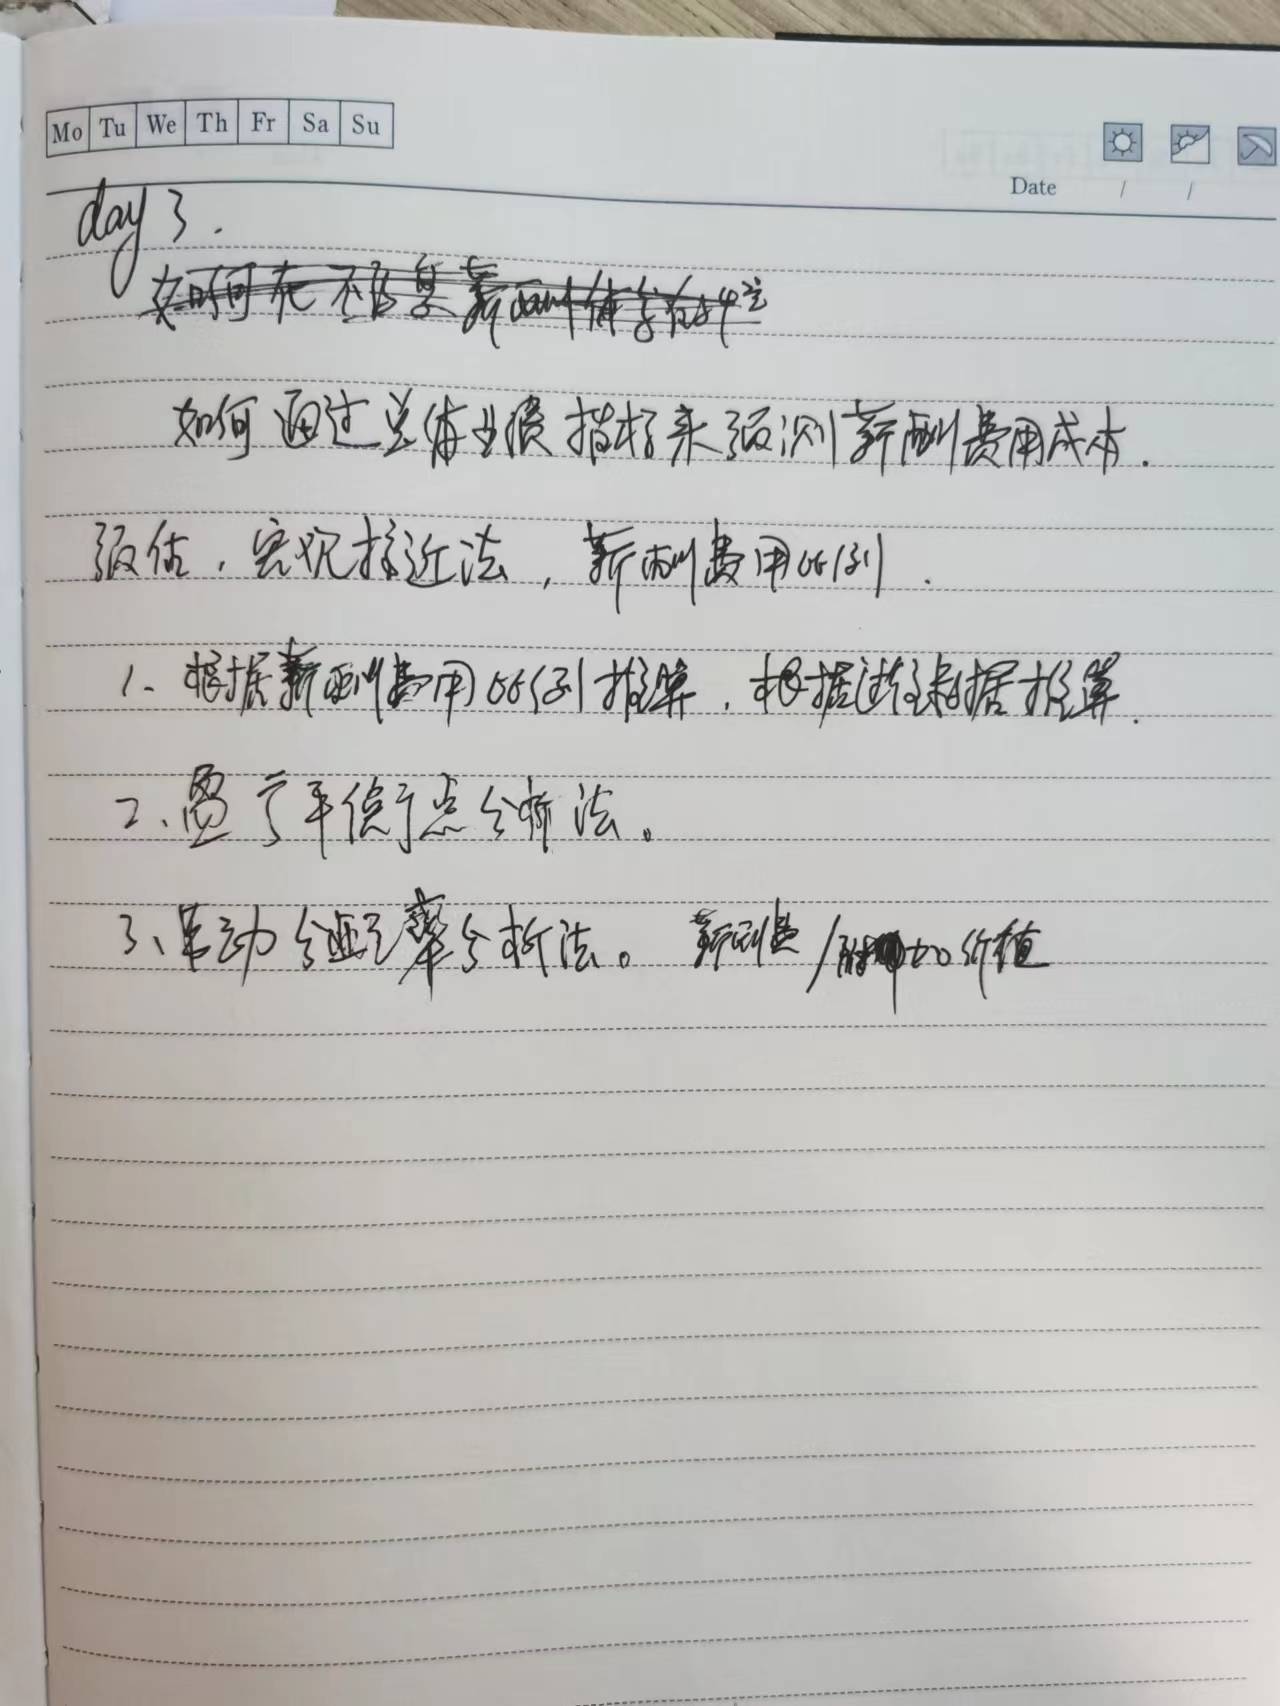 Mo Tu We Th Fr Sa Su
Date / /
day 3.
如何在 薪酬体
如何通过总体业绩指标来预测薪酬费用成本.
预估,宏观接近法,薪酬费用比例.
1、根据薪酬费用比例推算,根据过往数据推算.
2、盈亏平衡点分析法。
3、劳动分配率分析法。 薪酬费/附加价值